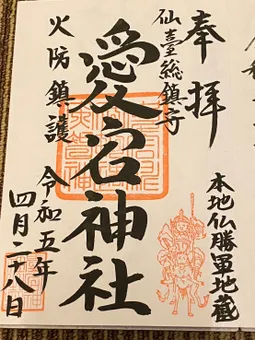 奉拝
仙臺総鎮守
本地仏勝軍地蔵
愛宕神社
火防鎮護
令和五年
四月二十八日